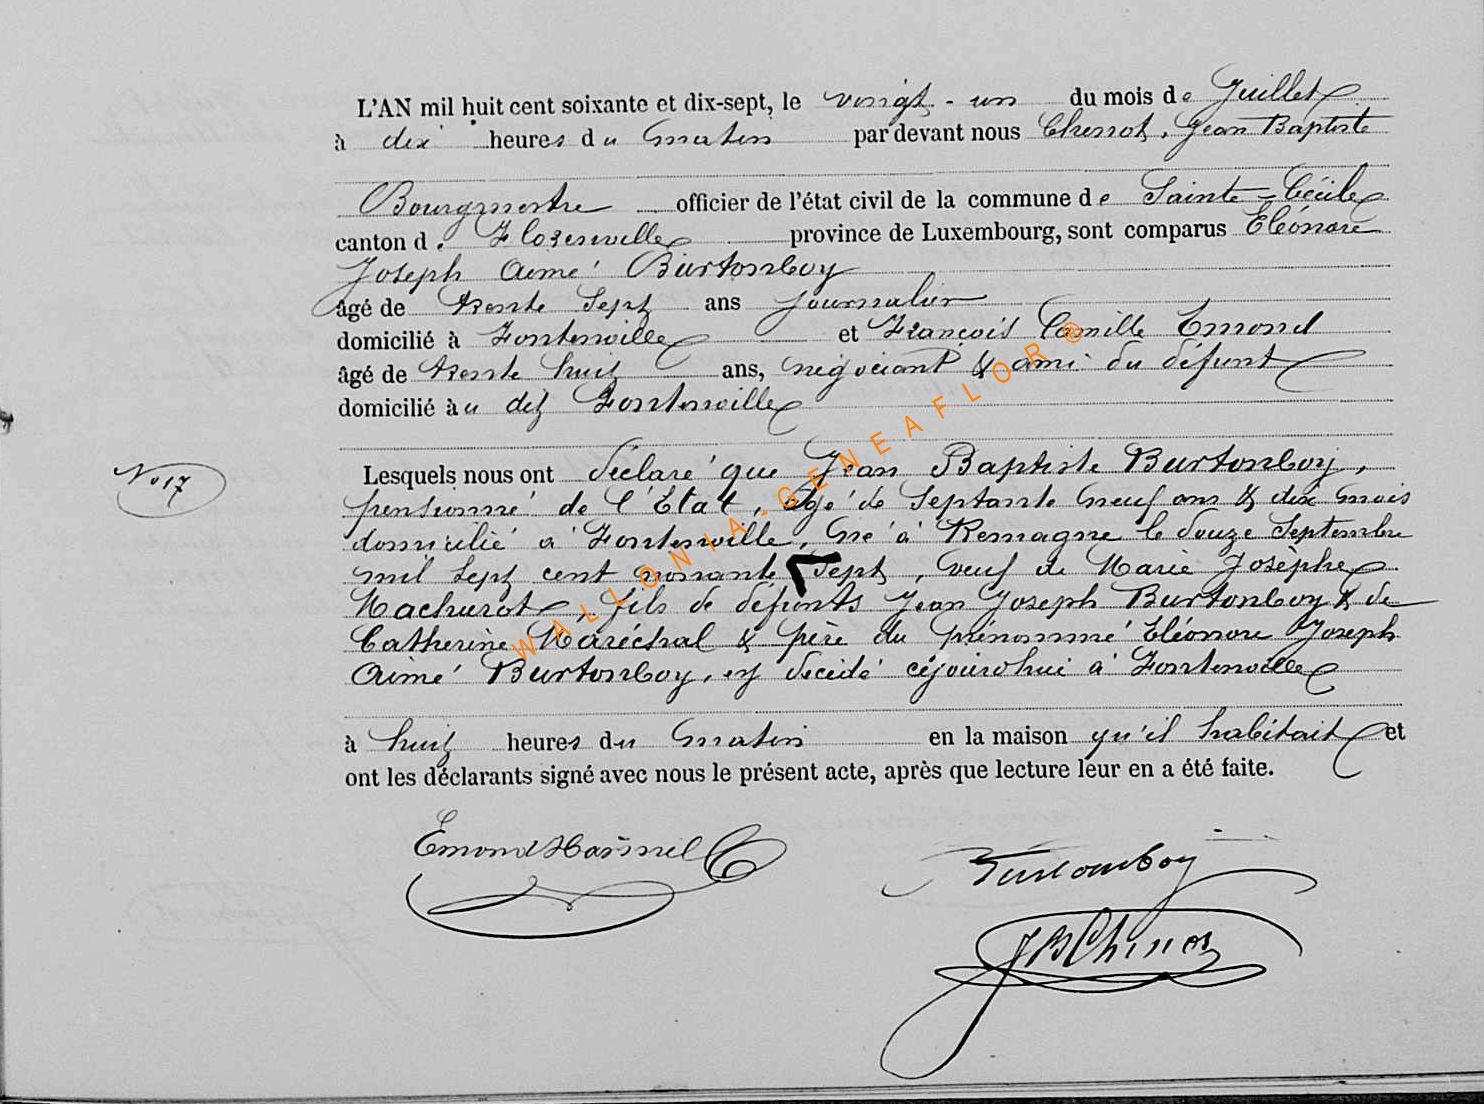 L'AN mil huit cent soixante et dix-sept, le vingt-un du mois de Juillet
à dix heures du matin par devant nous Chenot, Jean Baptiste
Bourgmestre officier de l'état civil de la commune de Sainte-Cécile
canton d. Florenville province de Luxembourg, sont comparus Eléonore
Joseph Aimé Burtomboy
âgé de trente sept ans journalier
domicilié à Fontenoille et François Camille Emond
âgé de trente huit ans, négociant & ami du défunt
domicilié au dit Fontenoille
No 17
Lesquels nous ont déclaré que Jean Baptiste Burtomboy,
pensionné de l'Etat, âgé de septante neuf ans & dix mois
domicilié à Fontenoille, né à Remagne le douze Septembre
mil sept cent nonante sept, veuf de Marie Josèphe
Machurot, fils de défunts Jean Joseph Burtomboy & de
Catherine Maréchal & père du prénommé Eléonore Joseph
Aimé Burtomboy, est décédé cejourd'hui à Fontenoille
à huit heures du matin en la maison qu'il habitait et
ont les déclarants signé avec nous le présent acte, après que lecture leur en a été faite.
Emond
Burtomboy
JB Chenot
WALLONIA-GENEAFLOR®